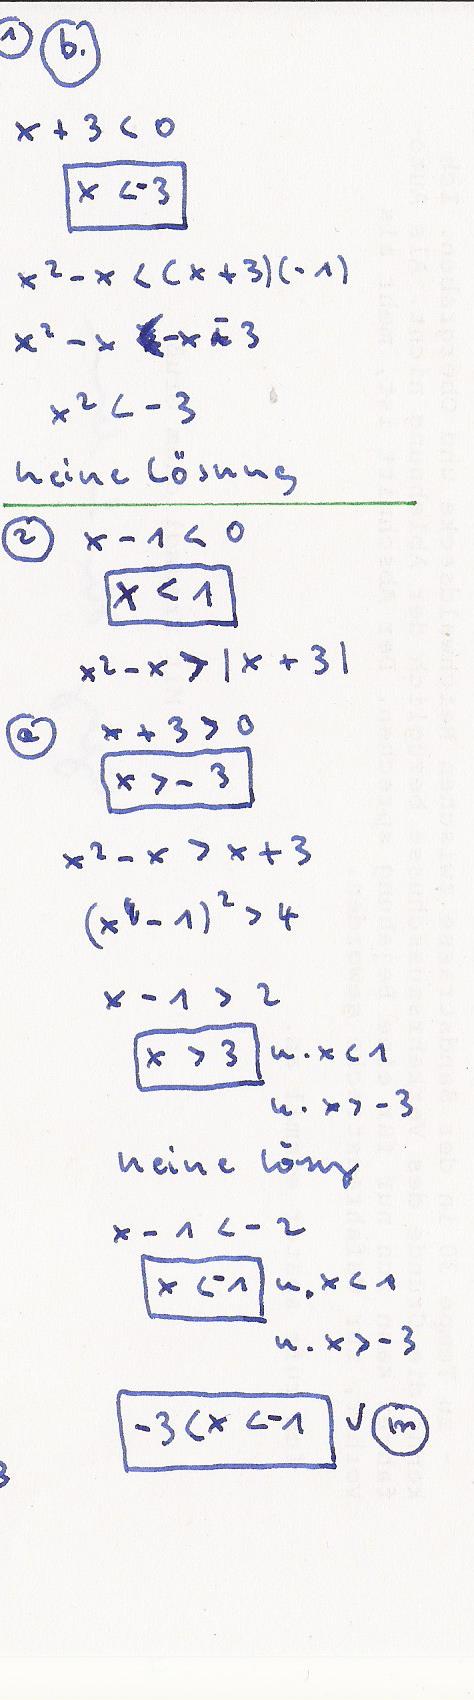 ① ⓑ.
x + 3 < 0
x < -3
x² - x < (x + 3)(-1)
x² - x < -x - 3
x² < -3
keine Lösung
② x - 1 < 0
x < 1
x² - x > |x + 3|
ⓐ x + 3 > 0
x > -3
x² - x > x + 3
(x - 1)² > 4
x - 1 > 2
x > 3 u. x < 1
u. x > -3
keine Lösg
x - 1 < -2
x < -1 u. x < 1
u. x > -3
-3 < x < -1 ✓
3